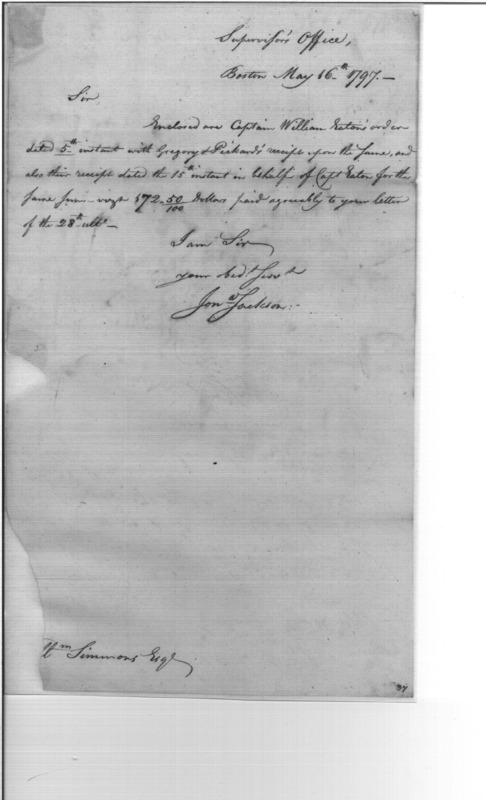 Supervisor's Office,
Boston May 16th 1797.—
Sir
Enclosed are Captain William Eaton's order
dated 5th instant with Gregory & Pickard's receipt upon the same, and
also their receipt dated the 15th instant in behalf of Capt Eaton for the
same sum— vizt $72 50/100 Dollars paid agreeably to your letter
of the 28th ulto—
I am Sir
your bedt Servt
Jona Jackson:-
Wm Simmons Esqr
37